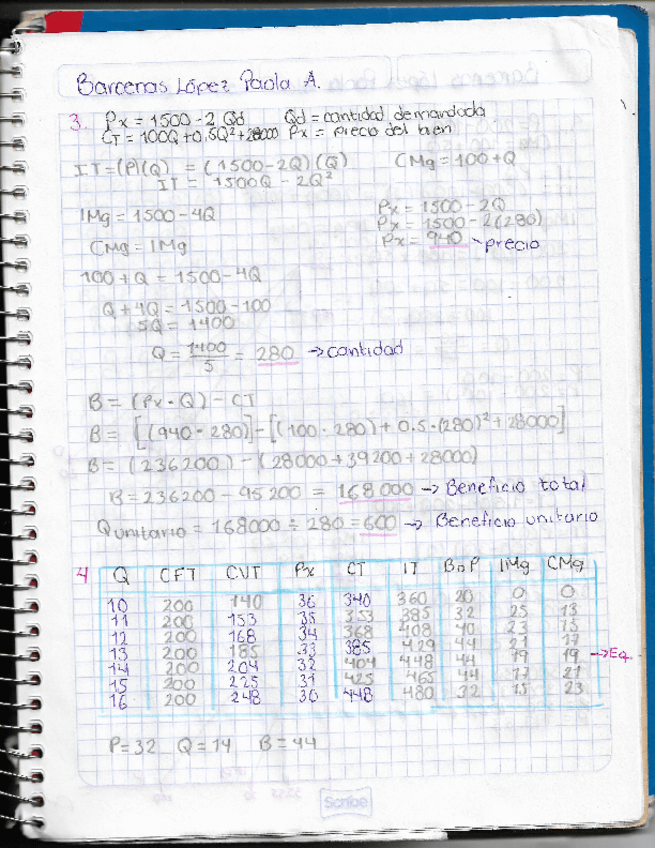 Barcenas López Paola A.
3. Px = 1500 - 2 Qd Qd = cantidad demandada
CT = 100Q + 0.5Q² + 28000 Px = precio del bien
IT = (P)(Q) = (1500 - 2Q)(Q) CMg = 100 + Q
IT = 1500Q - 2Q²
IMg = 1500 - 4Q Px = 1500 - 2Q
Px = 1500 - 2(280)
CMg = IMg Px = 940 → precio
100 + Q = 1500 - 4Q
Q + 4Q = 1500 - 100
5Q = 1400
Q = 1400/5 = 280 → cantidad
B = (Px · Q) - CT
B = [(940 · 280)] - [(100 · 280) + 0.5 · (280)² + 28000]
B = (236200) - (28000 + 39200 + 28000)
B = 236200 - 95200 = 168000 → Beneficio total
Q unitario = 168000 ÷ 280 = 600 → Beneficio unitario
4 Q CFT CVT Px CT IT B o P IMg CMg
10 200 140 36 340 360 20 0 0
11 200 153 35 353 385 32 25 13
12 200 168 34 368 408 40 23 15
13 200 185 33 385 429 44 21 17
14 200 204 32 404 448 44 19 19 → Eq.
15 200 225 31 425 465 44 17 21
16 200 248 30 448 480 32 15 23
P = 32 Q = 14 B = 44
Scribe